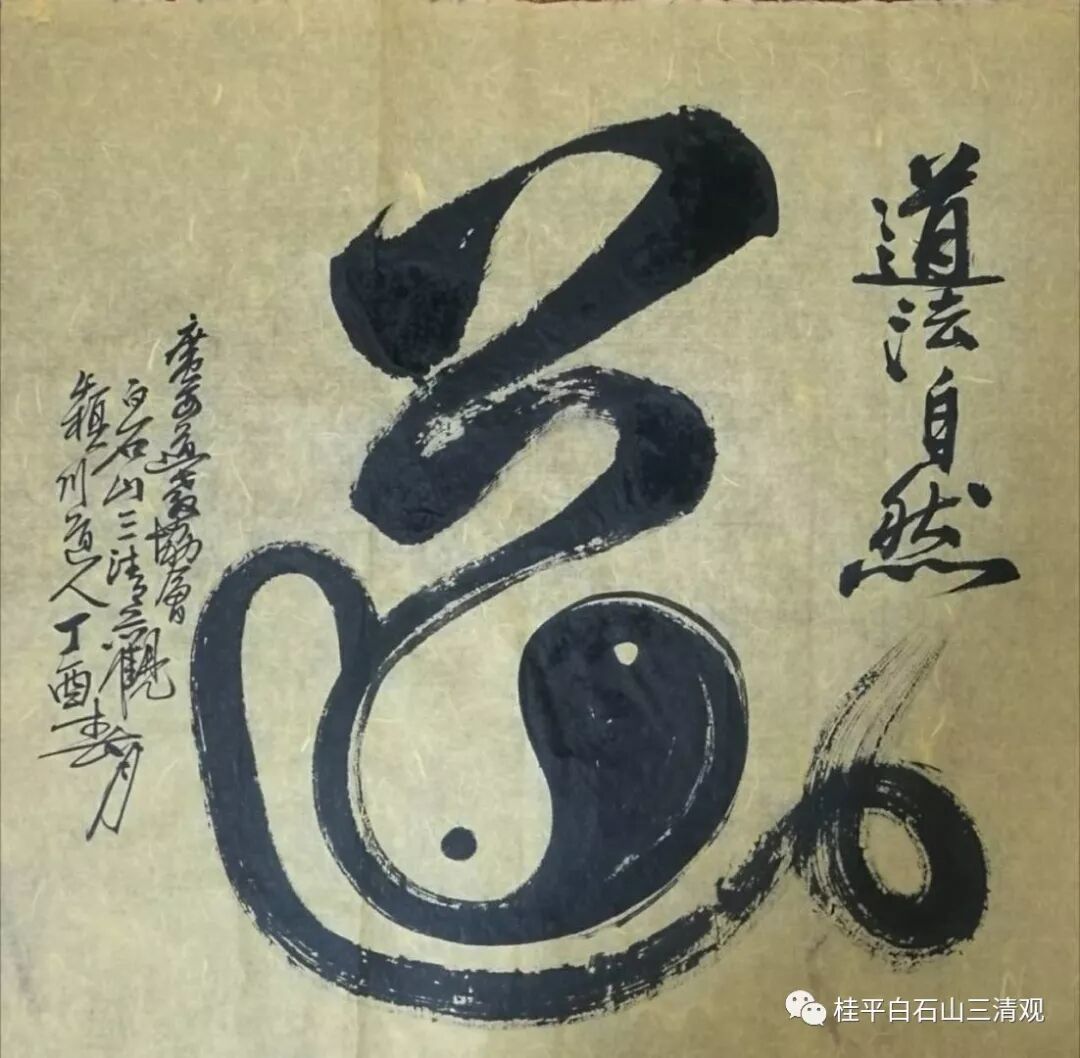 道法自然
道
廣西道教協會
白石山三清觀
穎川道人丁酉春月
桂平白石山三清观